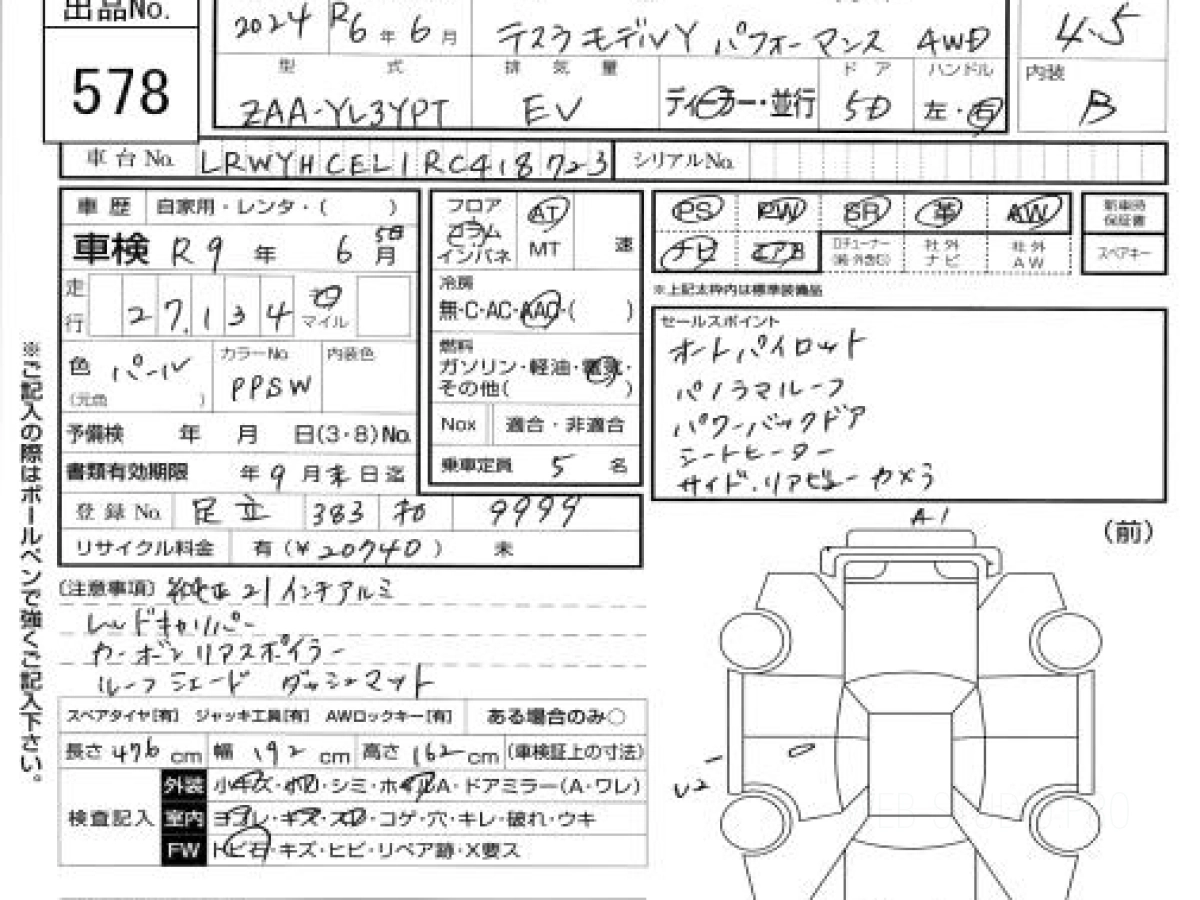 出品No.
578
2024 R6年 6月 テスラ モデルY パフォーマンス AWD 4.5
型式 排気量 ドア ハンドル 内装
ZAA-YL3YPT EV ディーラー・並行 5D 左・右 B
車台No. LRWYHCEL1RC418723 シリアルNo.
車歴 自家用・レンタ・( )
車検 R9年 6月 5日
走行 27,134 キロ マイル
色 パール (元色 ) カラーNo. PPSW 内装色
予備検 年 月 日(3・8)No.
書類有効期限 年9月末日迄
登録No. 足立 383 9999
リサイクル料金 有(¥20740) 未
フロア コラム インパネ AT MT 速
冷房
無・C・AC・AAC・( )
燃料
ガソリン・軽油・電気・
その他( )
Nox 適合・非適合
乗車定員 5 名
PS PW SR 革 AW 新車時保証書
ナビ エアB ロチューナー 社外ナビ 社外AW スペアキー
※上記太枠内は標準装備品
セールスポイント
オートパイロット
パノラマルーフ
パワーバックドア
シートヒーター
サイド・リアビューカメラ
※ご記入の際はボールペンで強くご記入下さい。
〔注意事項〕 純正21インチアルミ
レッドキャリパー
カーボンリアスポイラー
ルーフシェード ダッシュマット
スペアタイヤ[有] ジャッキ工具[有] AWロックキー[有] ある場合のみ○
長さ 476 cm 幅 192 cm 高さ 162 cm (車検証上の寸法)
検査記入
外装 小キズ・ボコ・シミ・ホイルA・ドアミラー(A・ワレ)
室内 ヨゴレ・キズ・スレ・コゲ・穴・キレ・破れ・ウキ
FW トビ石・キズ・ヒビ・リペア跡・X要ス
A1
(前)
U2